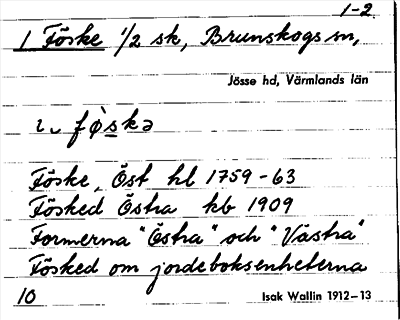 1-2.
1 Föske 1/2 sk, Brunskogs sn,
Jösse hd, Värmlands län
fø̀skə
Föske, Öst hl 1759-63
Fösked Östra kb 1909
Formerna "Östra" och "Västra"
Fösked om jordeboksenheterna
10 Isak Wallin 1912–13